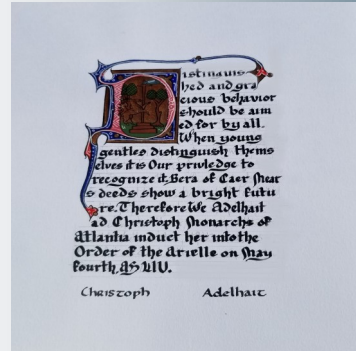 Distinguis
hed and gra
cious behavior
should be aim
ed for by all.
When young
gentles distinguish thems
elves it is Our privledge to
recognize it. Bera of Caer Mear
s deeds show a bright futu
re. Therefore We Adelhait
ad Christoph Monarchs of
Atlantia induct her into the
Order of the Arielle on May
fourth, AS LIV.
Christoph Adelhait